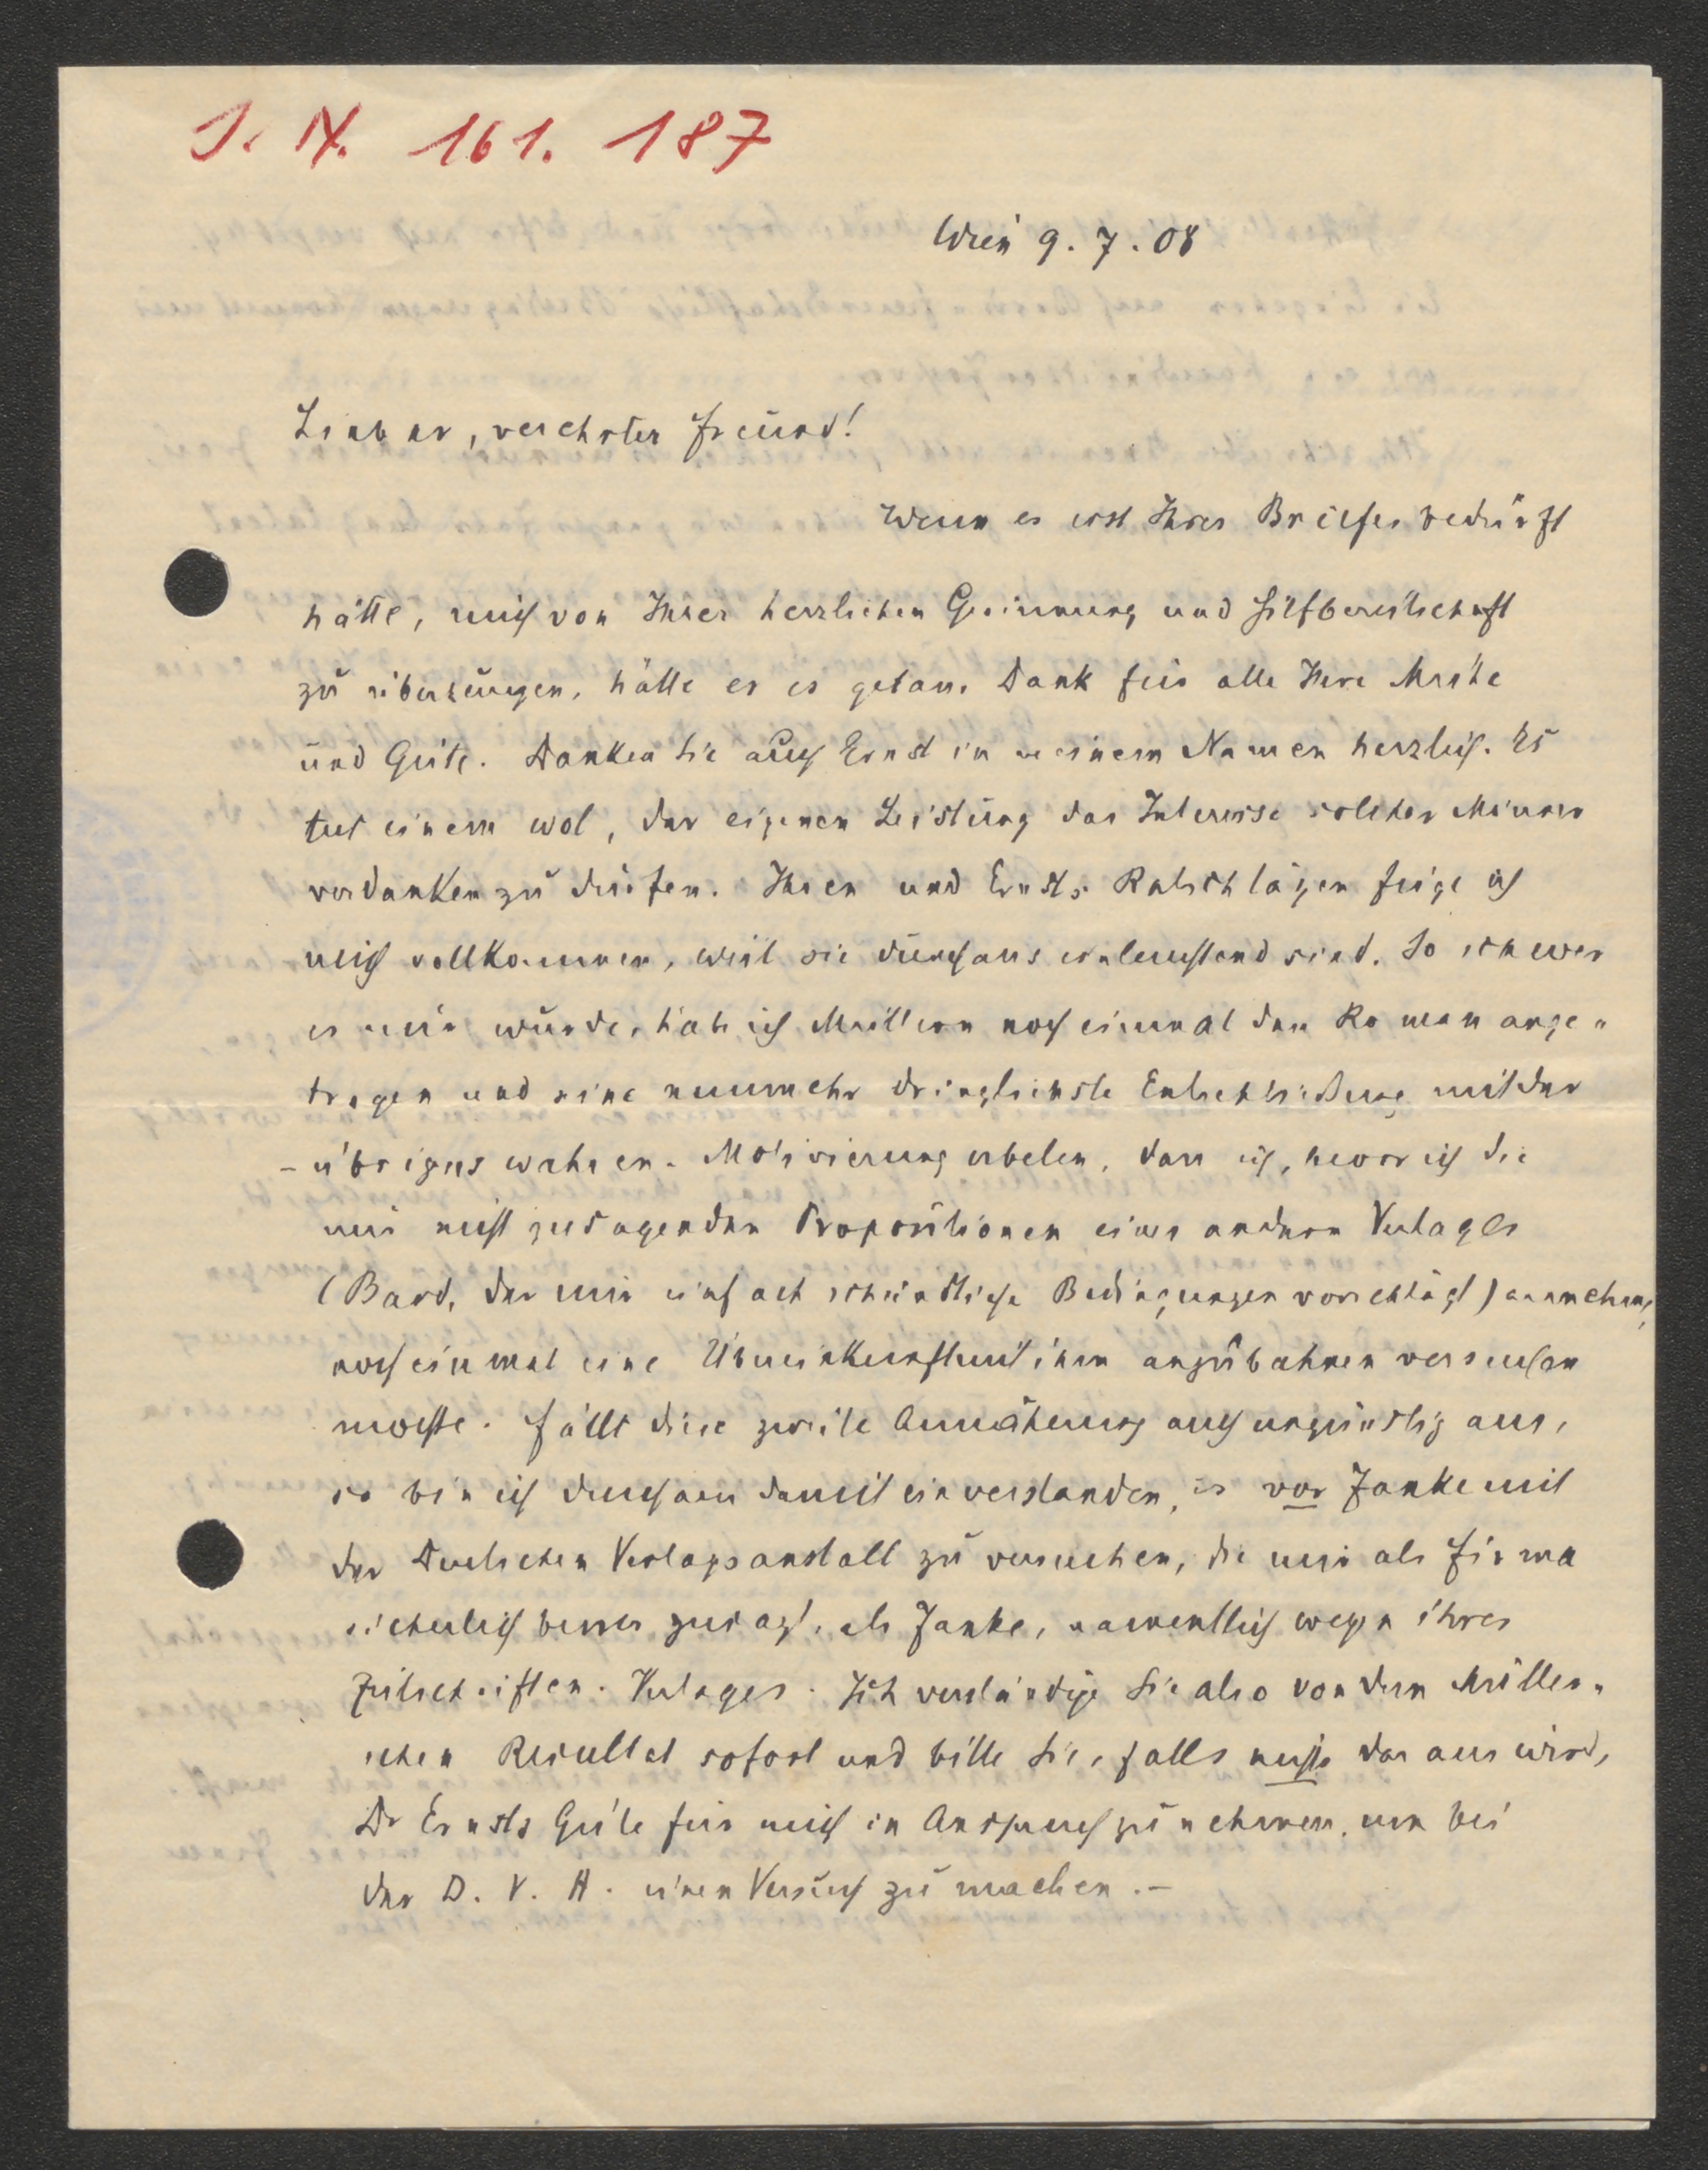 I. N. 161.187
Wien 9.7.08
Lieber, verehrter Freund!
Wenn es erst Ihres Briefes bedurft
hätte, mich von Ihrer herzlichen Gesinnung und Hilfbereitschaft
zu überzeugen, hätte er es getan. Dank für alle Ihre Mühe
und Güte. Danken Sie auch Ernst in meinem Namen herzlich. Es
tut einem wol, der eigenen Leistung das Interesse solcher Männer
verdanken zu dürfen. Ihren und Ernsts Ratschlägen füge ich
mich vollkommen, weil sie durchaus einleuchtend sind. So schwer
es mir wurde, hab ich Müllern noch einmal den Roman ange-
tragen und eine nunmehr dringlichste Entschließung mit der
- übrigens wahren - Motivierung erbeten, dass ich, bevor ich die
mir nicht zusagenden Propositionen eines andern Verlages
(Bard, der mir einfach schändliche Bedingungen vorschlägt) annehme,
noch einmal eine Übereinkunft mit ihm anzubahnen versuchen
möchte. Fällt diese zweite Annäherung auch ungünstig aus,
so bin ich durchaus damit einverstanden, es vor Janke mit
der Deutschen Verlagsanstalt zu versuchen, die mir als Firma
sicherlich besser zusagt, als Janke, namentlich wegen ihres
Zeitschriften-Verlages. Ich verständige Sie also von dem Müller-
schen Resultat sofort und bitte Sie, falls nichts daraus wird,
Dr Ernsts Güte für mich in Anspruch zu nehmen, um bei
der D. V. A. einen Versuch zu machen. -